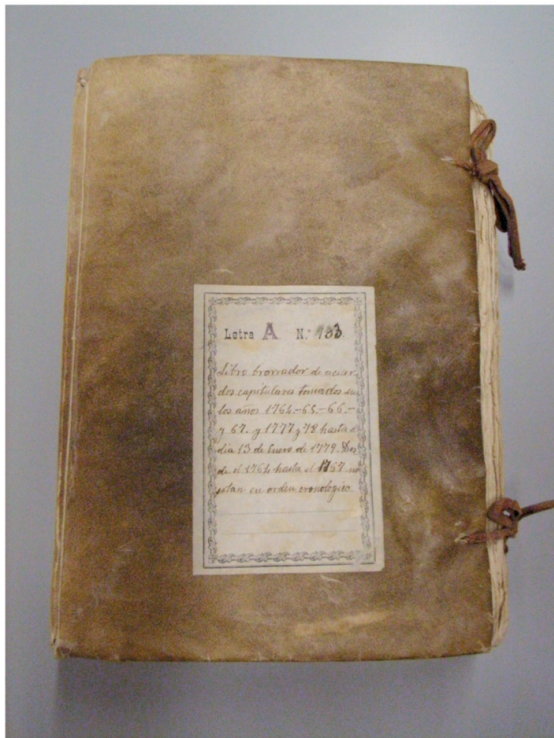 Letra A N.º 133
Libro borrador de acuer-
dos capitulares tomados en
los años 1764-65.-66.-
y 67. y 1777 y 78 hasta el
día 13 de Enero de 1779. Des
de el 1764 hasta el 1767 no
estan en orden cronológico.